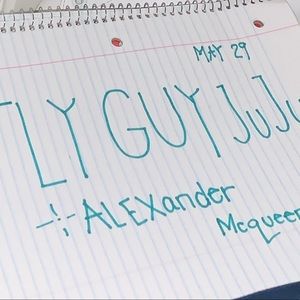 MAY 29
FLY GUY JuJu
ALEXander
Mcqueen